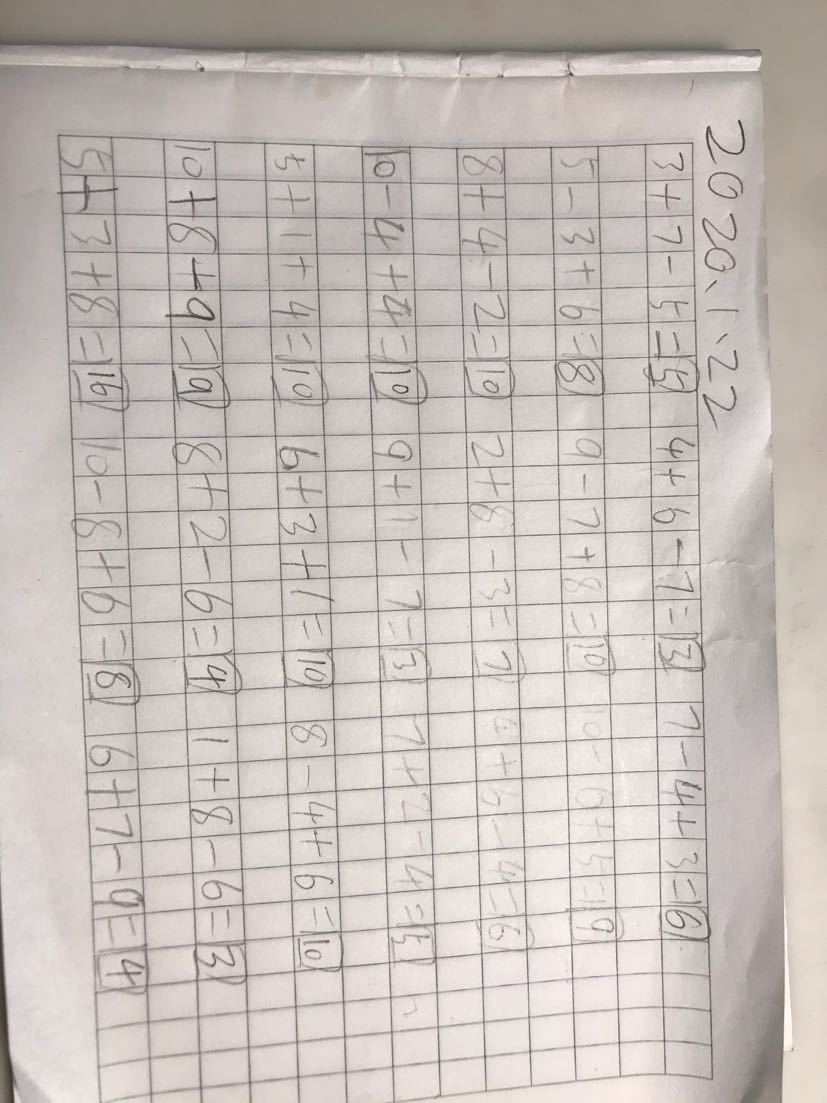 2020.1.22
3+7-5=5 4+6-7=3 7-4+3=6
5-3+6=8 9-7+8=10 10-6+5=9
8+4-2=10 2+8-3=7 4+6-4=6
10-4+4=10 9+1-7=3 7+2-4=5
5+1+4=10 6+3+1=10 8-4+6=10
10+8+9=19 8+2-6=4 1+8-6=3
5+3+8=16 10-8+6=8 6+7-9=4